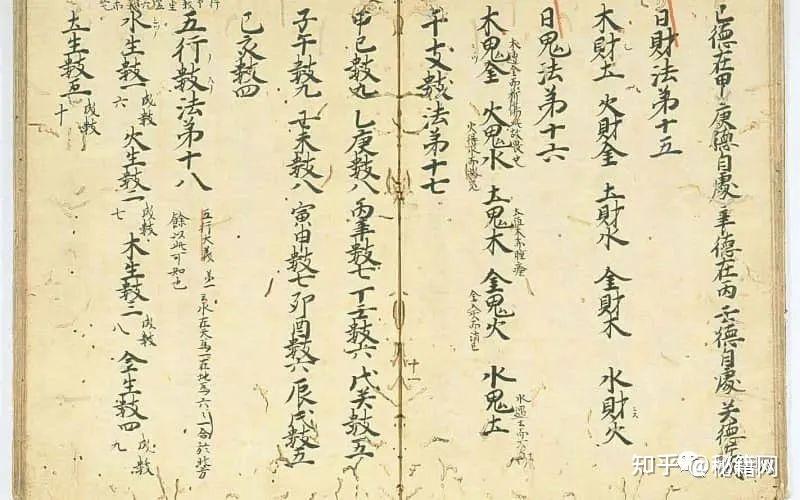 己德在甲 庚德自處 辛德在丙 壬德自處 癸德在戊
日財法第十五
木財土 火財金 土財水 金財木 水財火
日鬼法第十六
木鬼金 火鬼水 土鬼木 金鬼火 水鬼土
干支數法第十七
甲己數九 乙庚數八 丙辛數七 丁壬數六 戊癸數五
子午數九 丑未數八 寅申數七 卯酉數六 辰戌數五
巳亥數四
五行數法第十八
五行大義第一云水在天為一在地為六六一合於北
餘以此可知也
水生數一 成數六 火生數二 成數七 木生數三 成數八 金生數四 成數九
土生數五 成數十
十一
知乎 @秘籍网